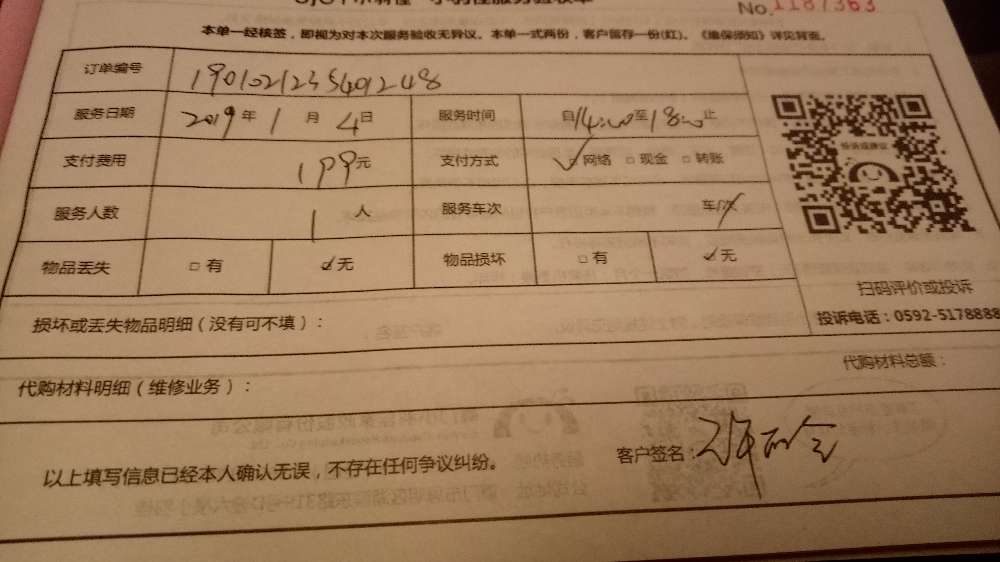 No.1187363
本单一经核签，即视为对本次服务验收无异议。本单一式两份，客户留存一份(红)。《维保须知》详见背面。
订单编号 1901021235401248
服务日期 2019年 1 月 4日 服务时间 自14:00至18:00止
支付费用 199元 支付方式 ☑网络 □现金 □转账
服务人数 1人 服务车次 车/次
物品丢失 □有 ☑无 物品损坏 □有 ☑无
投诉或建议
扫码评价或投诉
损坏或丢失物品明细（没有可不填）：
投诉电话：0592-5178888
代购材料明细（维修业务）： 代购材料总额：
以上填写信息已经本人确认无误，不存在任何争议纠纷。 客户签名：